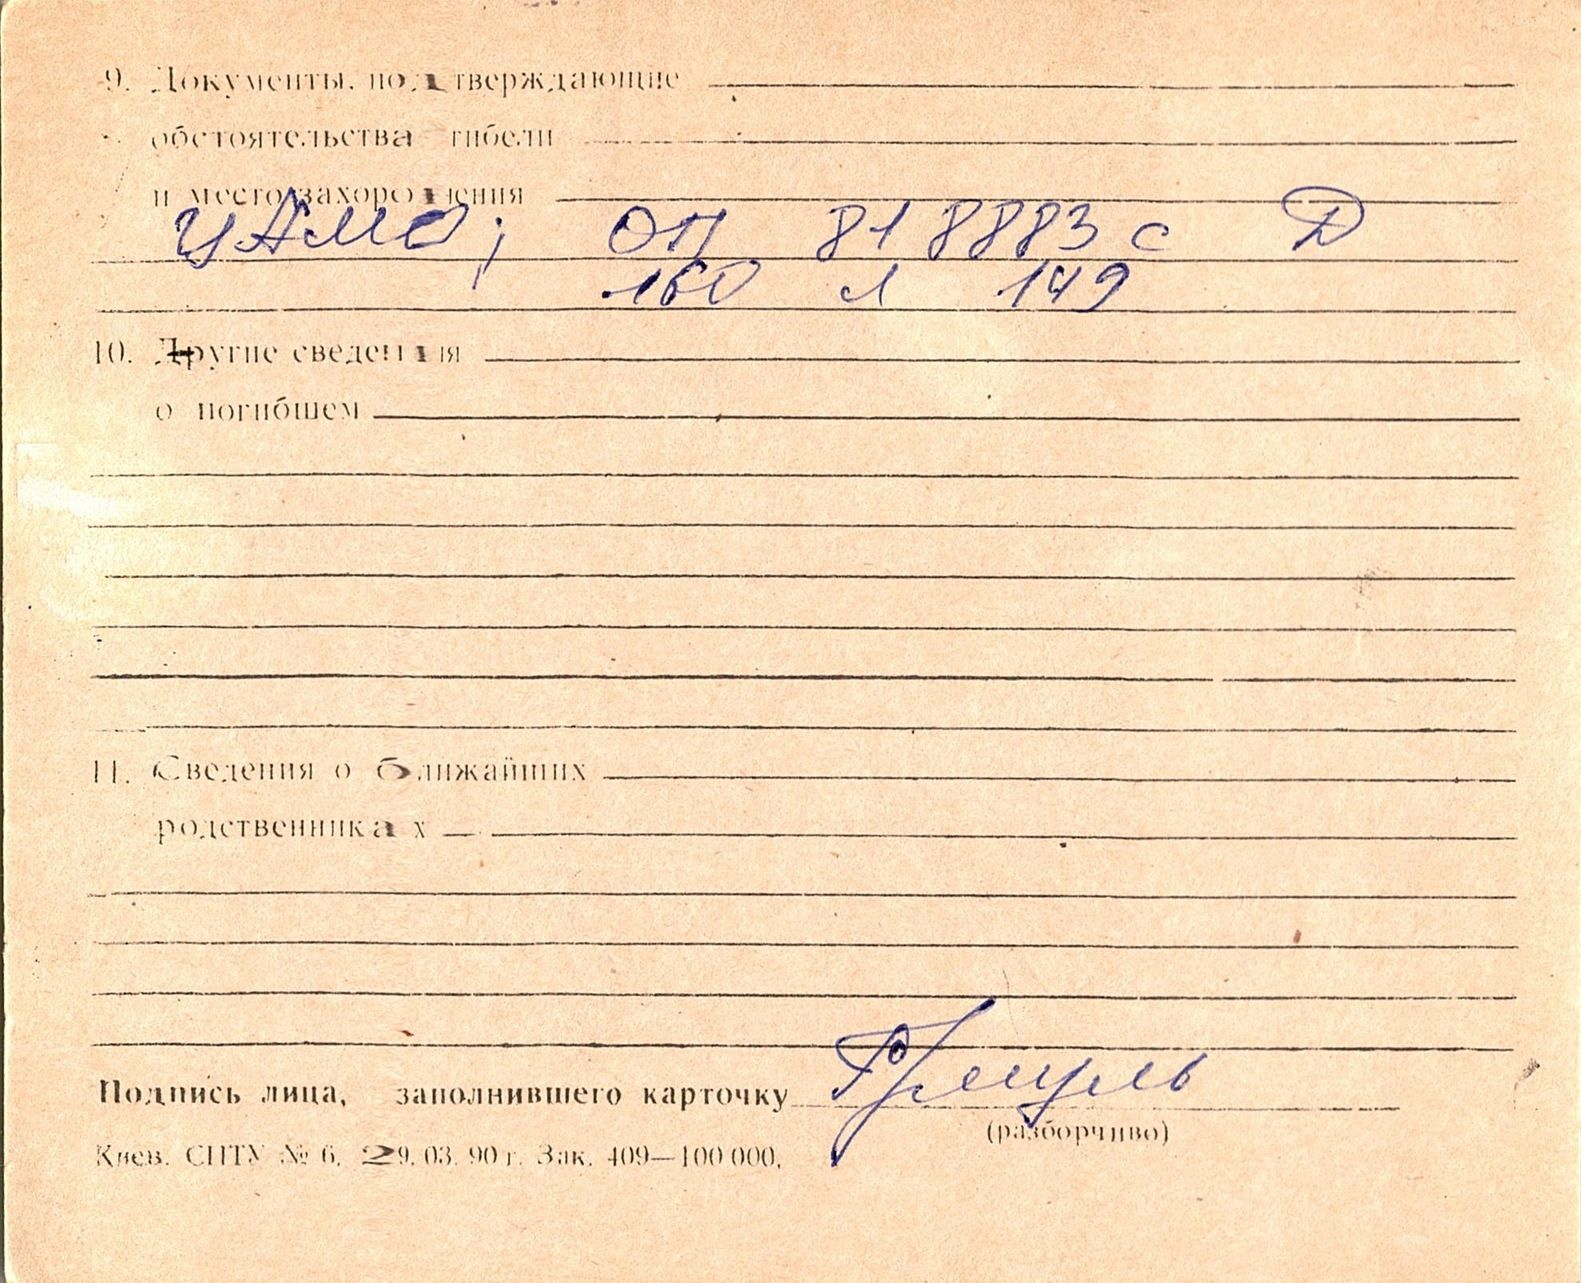 9. Документы, подтверждающие
обстоятельства гибели
и место захоронения
ЦАМО; ОП 818883с Д
160 л 149
10. Другие сведения
о погибшем
11. Сведения о ближайших
родственниках
Подпись лица, заполнившего карточку
(разборчиво)
Киев. СПТУ № 6. 29.03.90 г. Зак. 409—100 000.